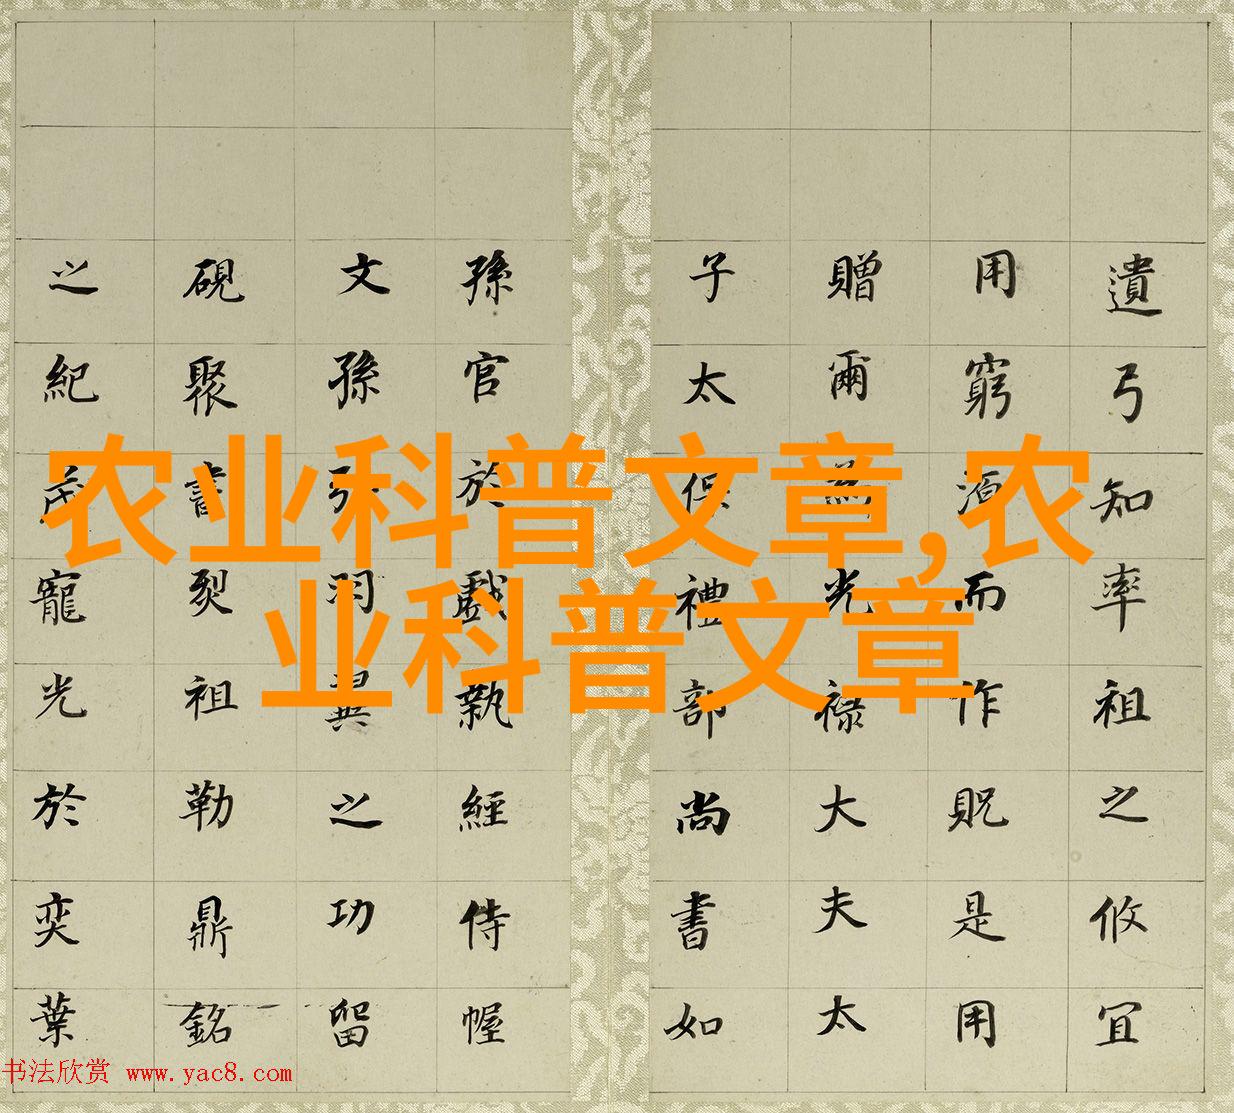 农业科普文章,农
业科普文章
遺弓知率祖之攸宜
用窮源而作貺是用
贈爾為光祿大夫太
子太保禮部尚書如
孫官於戲執經侍幄
文孫引羽翼之功留
硯聚書烈祖勒鼎銘
之紀茂寵光於奕葉
书法欣赏 www.yac8.com